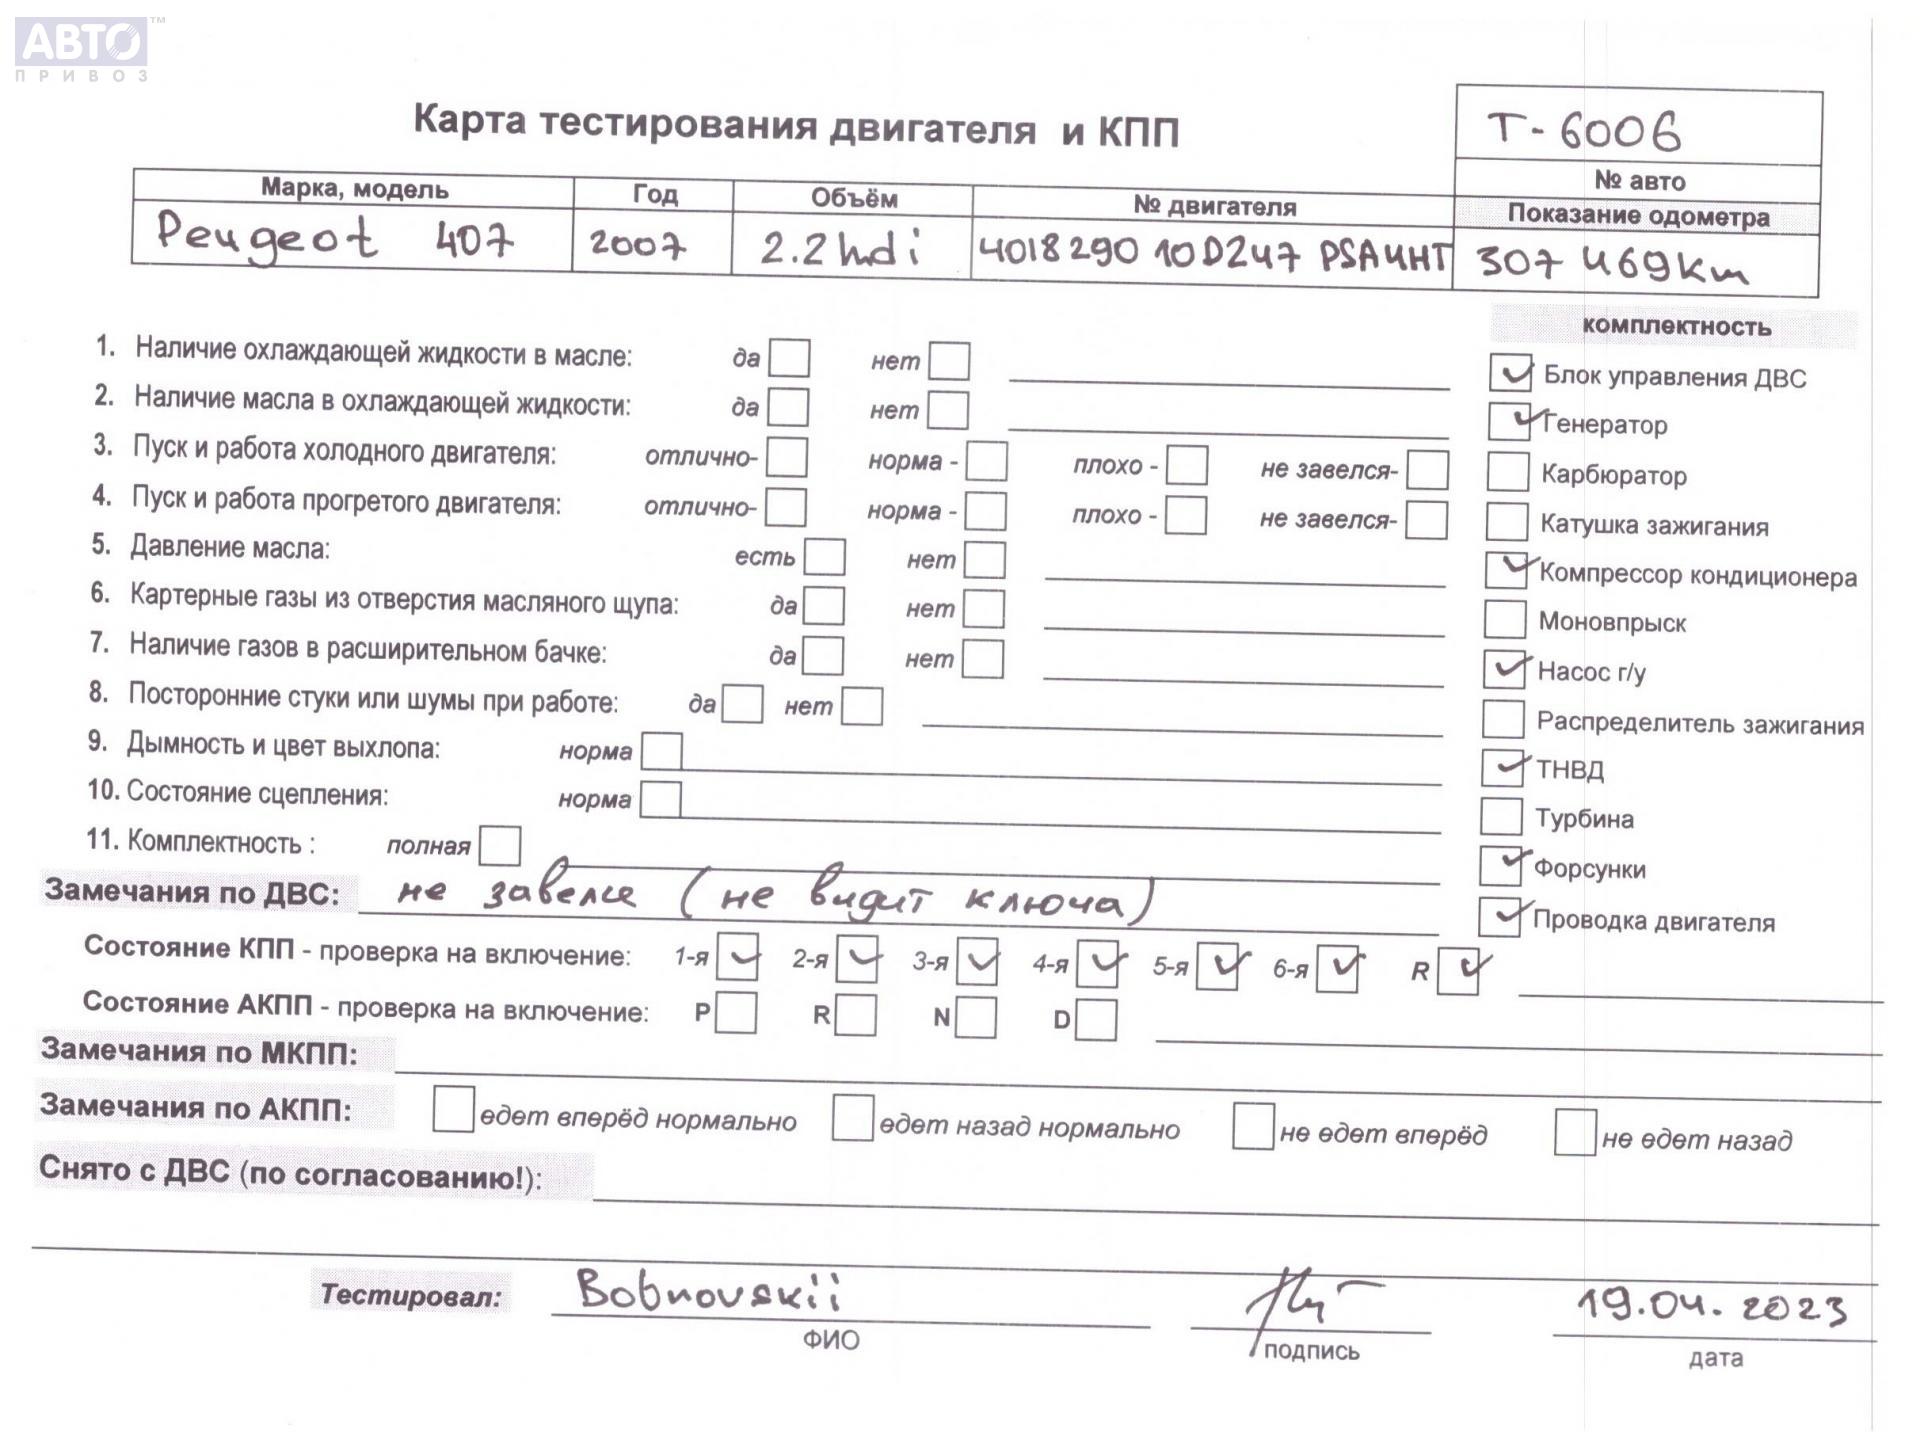 АВТО™
ПРИВОЗ
Карта тестирования двигателя и КПП
Т-6006
№ авто
Марка, модель Год Объём № двигателя Показание одометра
Peugeot 407 2007 2.2 hdi 4018290 10DZ47 PSA4HT 307 469km
комплектность
1. Наличие охлаждающей жидкости в масле: да нет
Блок управления ДВС
2. Наличие масла в охлаждающей жидкости: да нет
Генератор
3. Пуск и работа холодного двигателя: отлично- норма - плохо - не завелся-
Карбюратор
4. Пуск и работа прогретого двигателя: отлично- норма - плохо - не завелся-
Катушка зажигания
5. Давление масла: есть нет
Компрессор кондиционера
6. Картерные газы из отверстия масляного щупа: да нет
Моновпрыск
7. Наличие газов в расширительном бачке: да нет
Насос г/у
8. Посторонние стуки или шумы при работе: да нет
Распределитель зажигания
9. Дымность и цвет выхлопа: норма
ТНВД
10. Состояние сцепления: норма
Турбина
11. Комплектность : полная
Форсунки
Замечания по ДВС: не завелся (не видит ключа)
Проводка двигателя
Состояние КПП - проверка на включение: 1-я 2-я 3-я 4-я 5-я 6-я R
Состояние АКПП - проверка на включение: P R N D
Замечания по МКПП:
Замечания по АКПП: едет вперёд нормально едет назад нормально не едет вперёд не едет назад
Снято с ДВС (по согласованию!):
Тестировал: Bobnovskii 19.04.2023
ФИО подпись дата